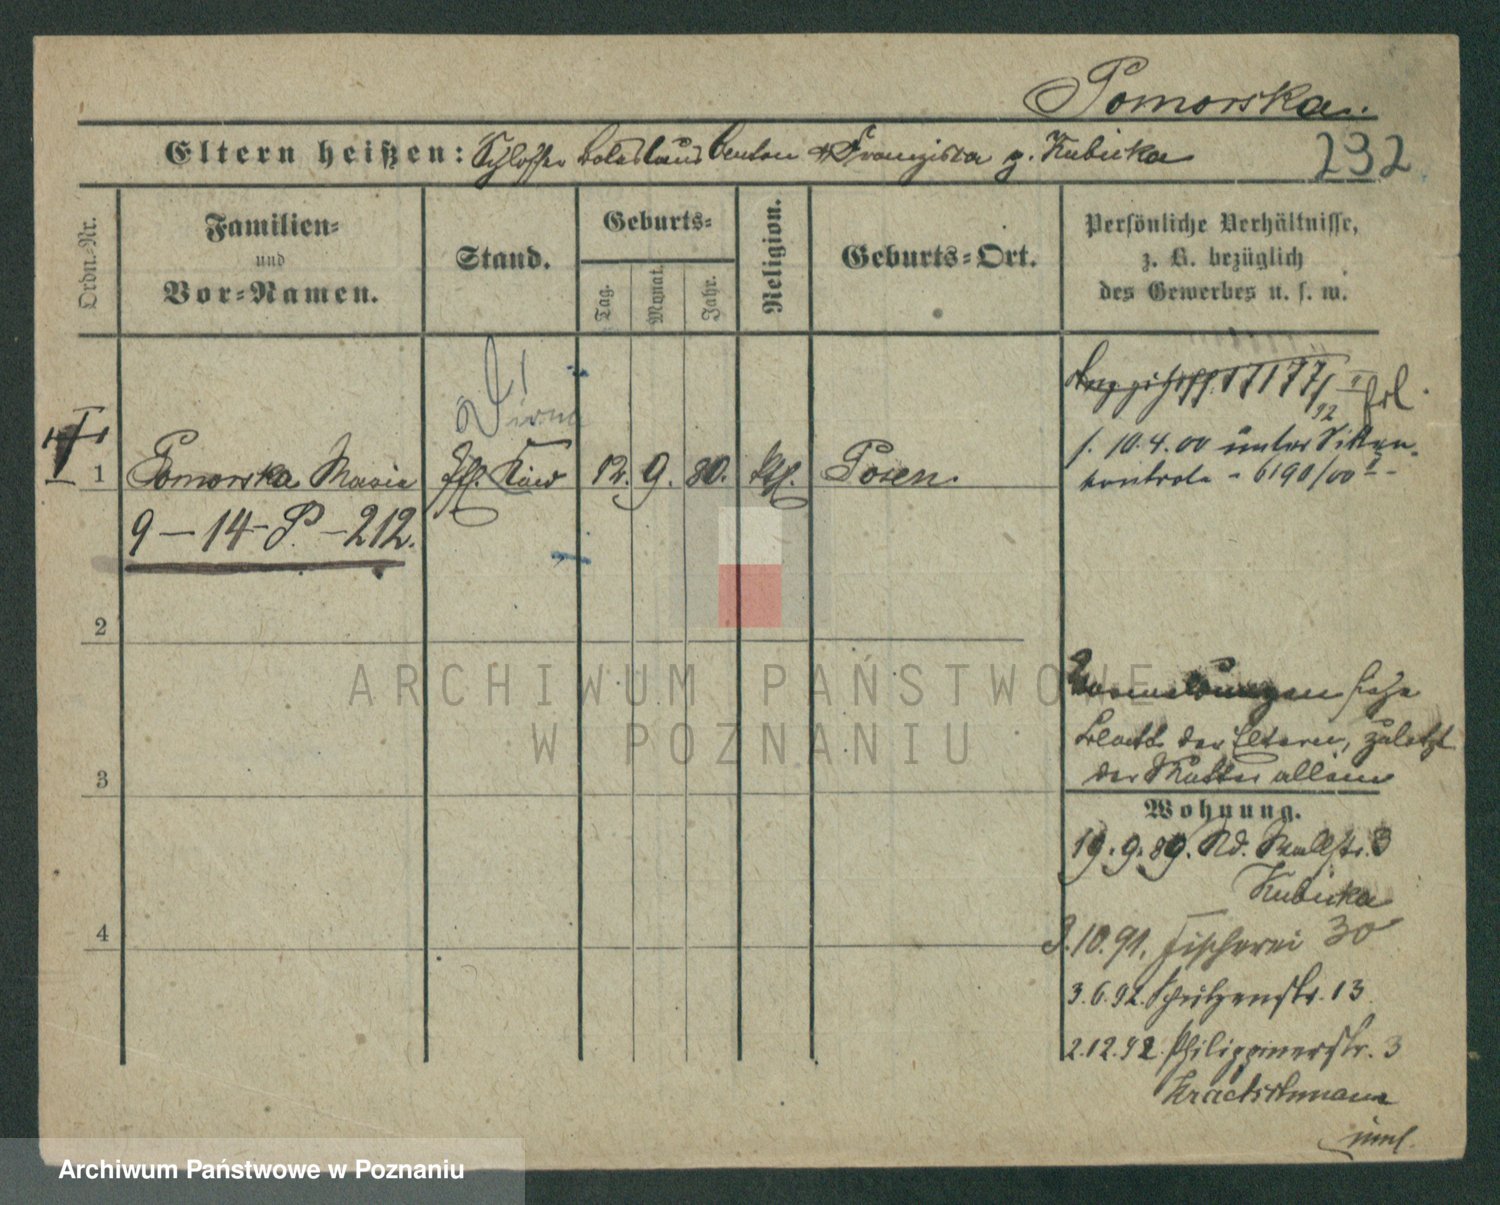 Pomorska.
Eltern heißen: Schlosser Boleslaus & Franziska g. Kubicka
232
Ordn.-Nr.
Familien-
und
Vor-Namen.
Stand.
Geburts-
Tag.
Monat.
Jahr.
Religion.
Geburts-Ort.
Persönliche Verhältnisse,
z. B. bezüglich
des Gewerbes u. s. w.
Dirne
1 Pomorska Maria 12. 9. 80. kth. Posen.
9-14-P.-212.
f. 10.4.00 unter Sitten-
kontrole - 6190/00 I -
2
3
4
Anmeldungen siehe
Blatt der Eltern, zuletzt
der Mutter allein
Wohnung.
19.9.89. Wallstr. 3
Kubicka
3.10.91. Fischerei 30
3.6.92. Schützenstr. 13
2.12.92. Philippinerstr. 3
ARCHIWUM PAŃSTWOWE
W POZNANIU
Archiwum Państwowe w Poznaniu